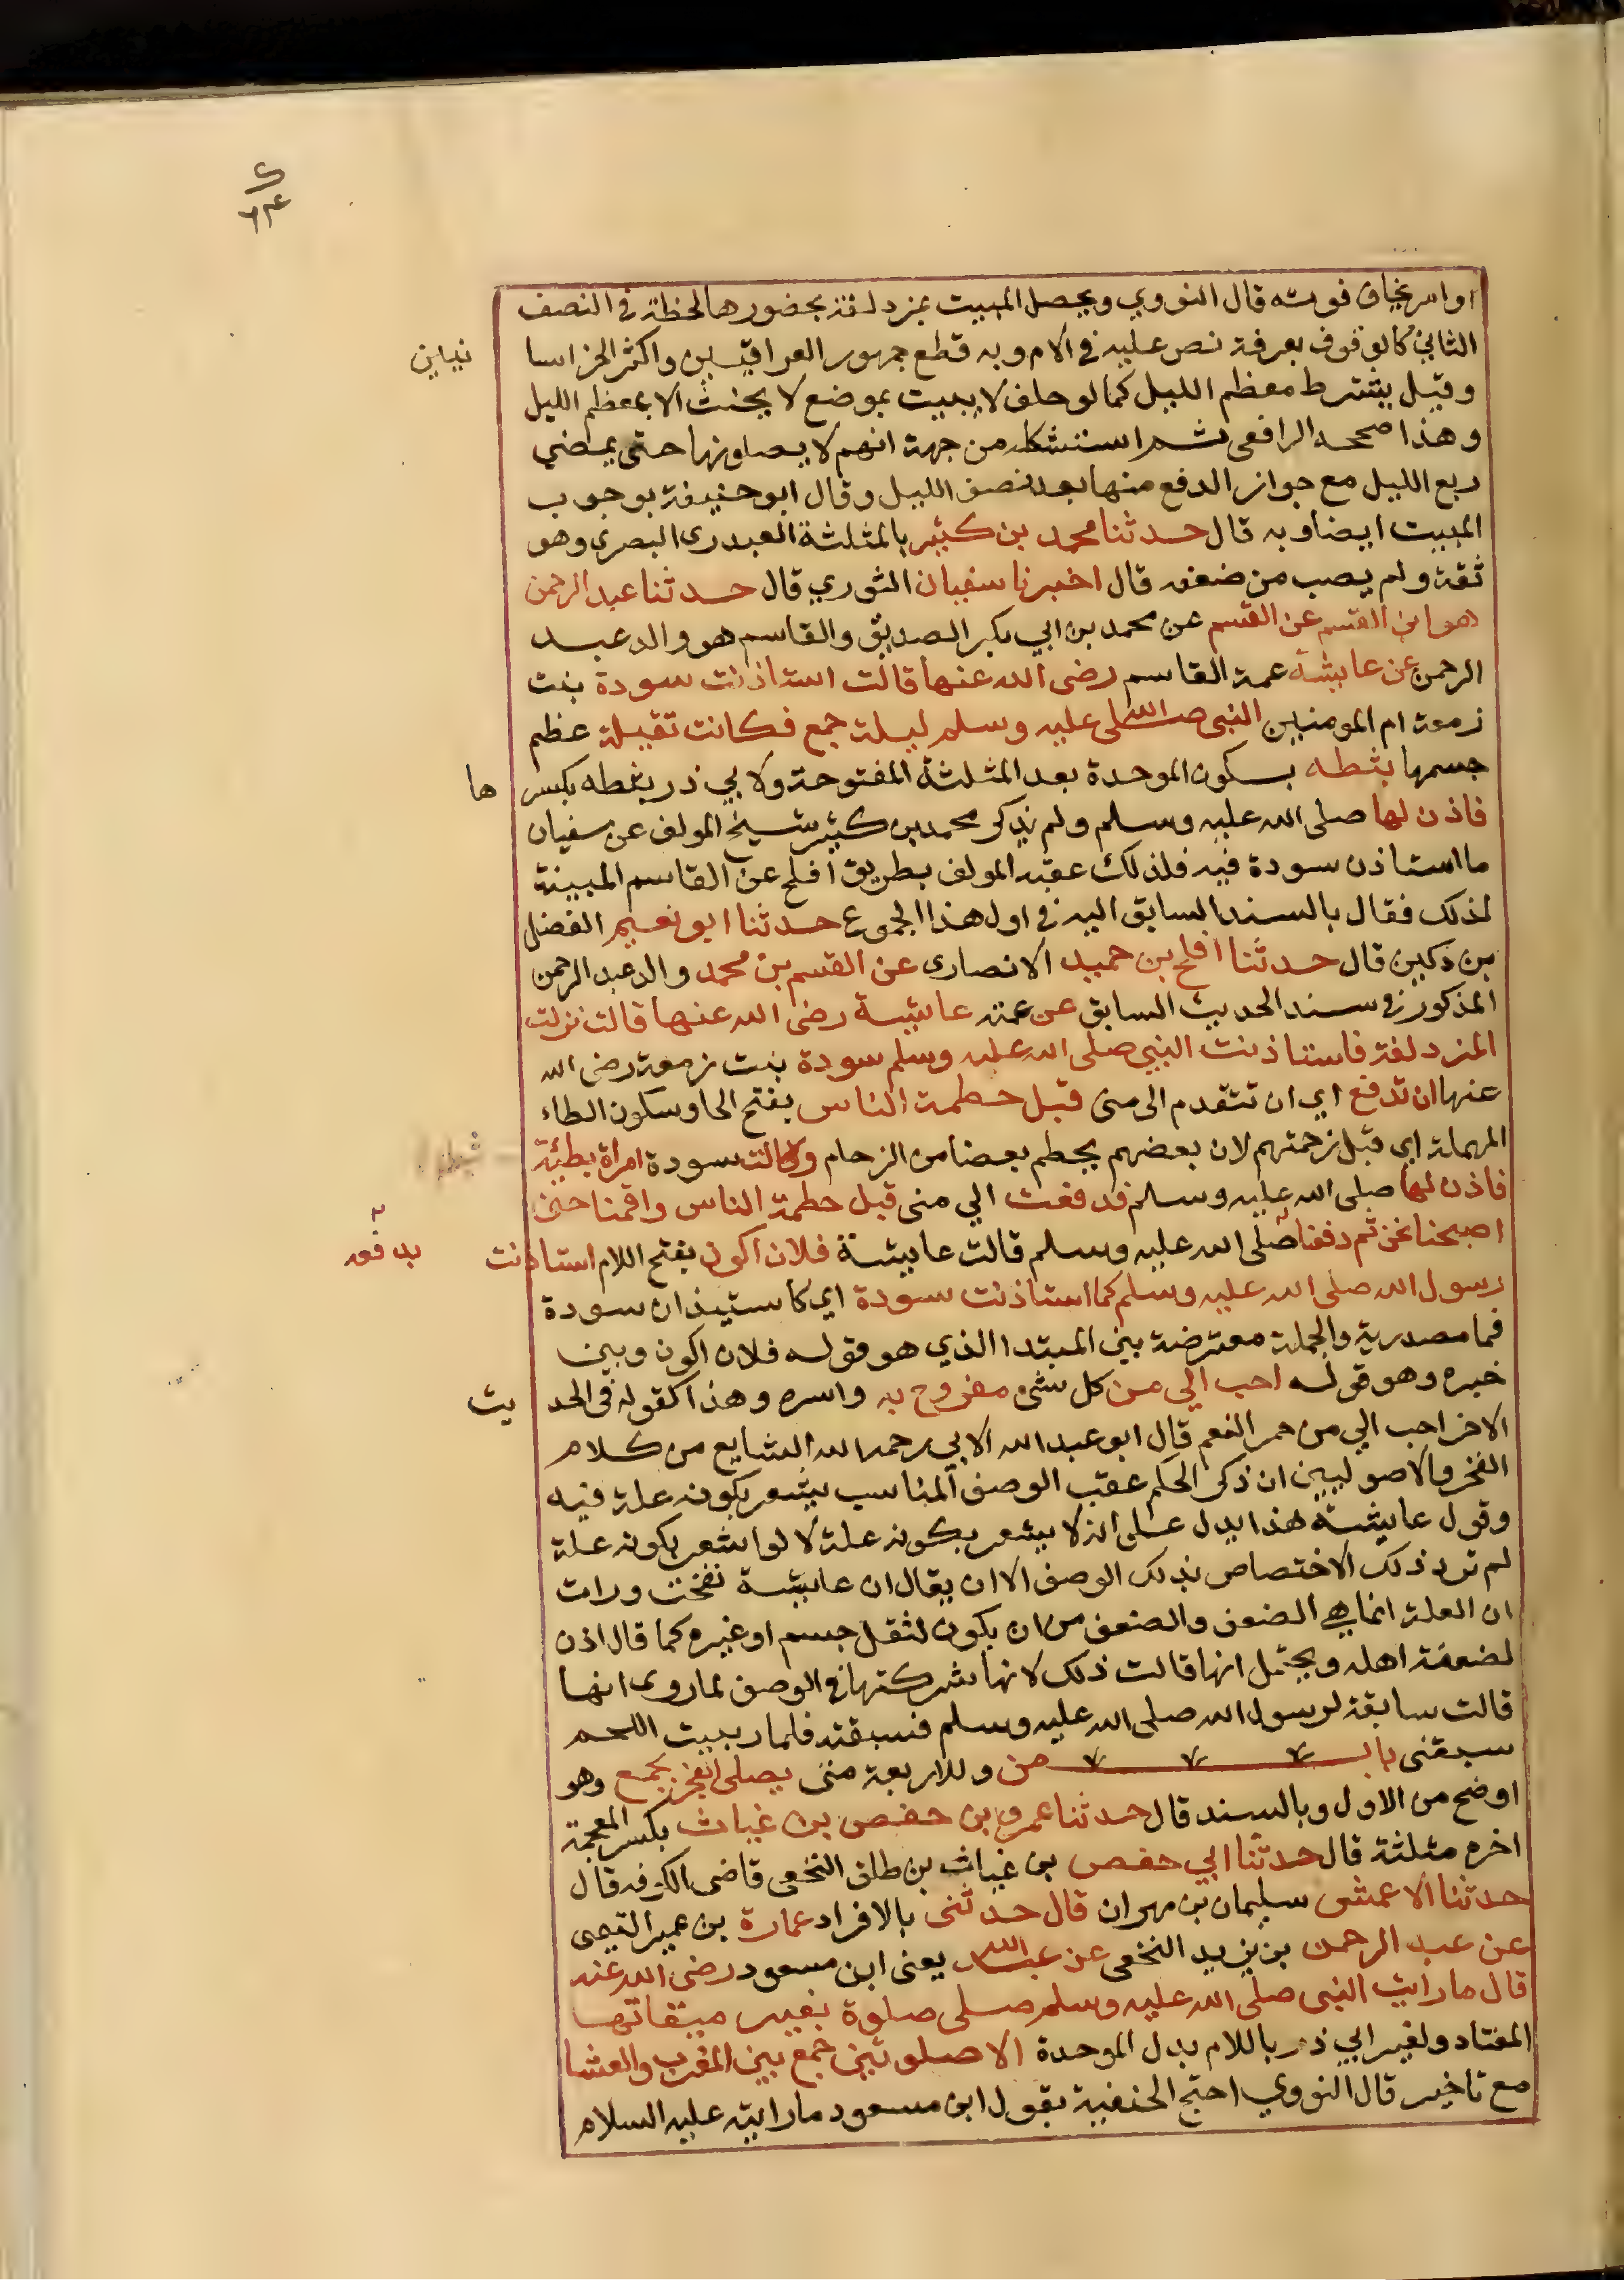 او امر يخاف فوته قال النووي ويحصل المبيت بمزدلفة بحضورها لحظة في النصف
الثاني كالوقوف بعرفة نص عليه في الام وبه قطع جمهور العراقيين واكثر الخراسا نيين
وقيل يشترط معظم الليل كما لو حلف لا يبيت بموضع لا يحنث الا بمعظم الليل
وهذا صححه الرافعي ثم استشكله من جهة انهم لا يصلونها حتى يمضي
ربع الليل مع جواز الدفع منها بعد نصف الليل وقال ابو حنيفة بوجوب
المبيت ايضا وبه قال حدثنا محمد بن كثير بالمثلثة العبدري البصري وهو
ثقة ولم يصب من ضعفه قال اخبرنا سفيان الثوري قال حدثنا عبد الرحمن
هو ابن القسم عن القسم عن محمد بن ابي بكر الصديق والقاسم هو والد عبد
الرحمن عن عايشة عمة القاسم رضي الله عنها قالت استاذنت سودة بنت
زمعة ام المومنين النبي صلى الله عليه وسلم ليلة جمع فكانت ثقيلة عظم
جسمها بثطه بسكون الموحدة بعد المثلثة المفتوحة ولابي ذر بثطه بكسر ها
فاذن لها صلى الله عليه وسلم ولم يذكر محمد بن كثير شيخ المولف عن سفيان
ما استاذن سودة فيه فلذلك عقبه المولف بطريق افلح عن القاسم المبينة
لذلك فقال بالسند السابق اليه في اول هذا المجموع حدثنا ابو نعيم الفضل
بن دكين قال حدثنا افلح بن حميد الانصاري عن القسم بن محمد والد عبد الرحمن
المذكور في سند الحديث السابق عن عمته عايشة رضي الله عنها قالت نزلت
المزدلفة فاستاذنت النبي صلى الله عليه وسلم سودة بنت زمعة رضي الله
عنها ان تدفع اي ان تتقدم الى منى قبل حطمة الناس بفتح الحا وسكون الطاء
المهملة اي قبل زحمتهم لان بعضهم يحطم بعضا من الزحام وكانت سودة امراة بطيئة
فاذن لها صلى الله عليه وسلم فدفعت الي منى قبل حطمة الناس واقمنا حتى
اصبحنا نحن ثم دفعنا صلى الله عليه وسلم قالت عايشة فلان اكون بفتح اللام استاذنت بدفعه
رسول الله صلى الله عليه وسلم كما استاذنت سودة اي كاستيذان سودة
فما مصدرية والجملة معترضة بين المبتدا الذي هو قوله فلان اكون وبين
خبره وهو قوله احب الي من كل شئ مفروح به واسره وهذا كقوله في الحد يث
الاخر احب الي من حمر النعم قال ابو عبد الله الابي رحمه الله الشايع من كلام
الفخر والاصوليين ان ذكر الحكم عقب الوصف المناسب يشعر بكونه علة فيه
وقول عايشة هذا يدل على انه لا يشعر بكونه علة لا لو اشعر بكونه علة
لم ترد ذلك الاختصاص بذلك الوصف الا ان يقال ان عايشة نفخت ورات
ان العلة انما هي الضعف والضعف من ان يكون لثقل جسم او غيره كما قال اذن
لضعفة اهله ويحتمل انها قالت ذلك لانها شركتها في الوصف لما روى انها
قالت سابقة لرسول الله صلى الله عليه وسلم فسبقته فلما ربيت اللحم
سبقني باب من وللاربعة متى يصلى الفجر بجمع وهو
اوضح من الاول وبالسند قال حدثنا عمرو بن حفص بن غياث بكسر المعجمة
اخره مثلثة قال حدثنا ابي حفص بن غياث بن طلق النخعي قاضي الكوفه قال
حدثنا الاعمش سليمان بن مهران قال حدثني بالافراد عمارة بن عمير التيمى
عن عبد الرحمن بن يزيد النخعي عن عبد الله يعنى ابن مسعود رضي الله عنه
قال ما رايت النبي صلى الله عليه وسلم صلى صلوة بغير ميقاتها
المعتاد ولغير ابي ذر باللام بدل الموحدة الا صلوتين جمع بين المغرب والعشا
مع تاخير قال النووي احتج الحنفية بقول ابن مسعود ما رايته عليه السلام